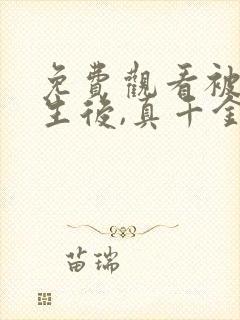 免費觀看被
生後,真千金
苗瑞